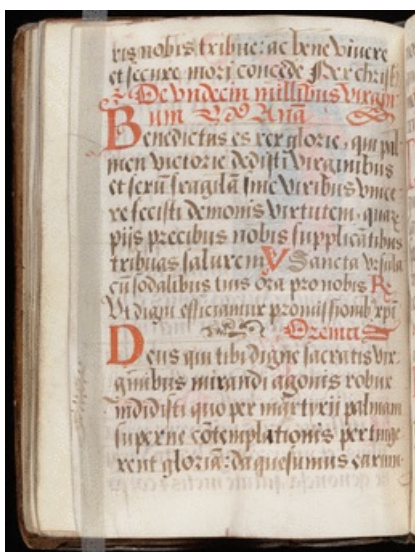 ris nobis tribue: ac bene viuere
et secure mori concede Per christ
De vndecim millibus virgin
um Anã
Benedictus es rex glorie, qui pal
men victorie dedisti virginibus
et sexũ fragilã sine viribus vince
re fecisti demonis virtutem, quaꝫ
pijs precibus nobis supplicãtibus
tribuas salutem V Sancta vrsula
cũ sodalibus tuis ora pro nobis R
Vt digni efficiamur promissionib xpi
Oremus
Deus qui tibi digne sacratis vir-
ginibus mirandi agonis robur
indidisti quo per martyrij palmam
superne cõtemplationis pertinge
rent gloriã: da quesumus earum